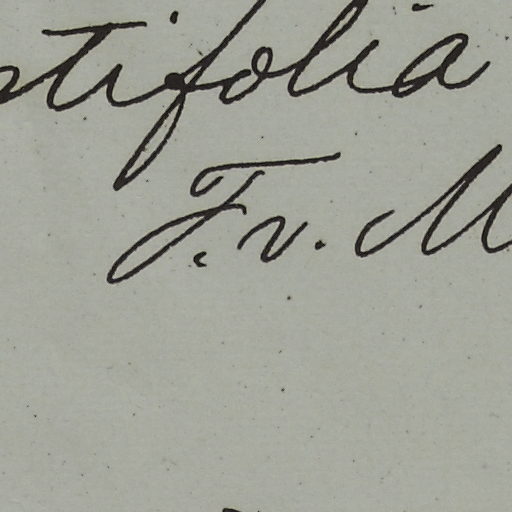 stifolia
F. v. M